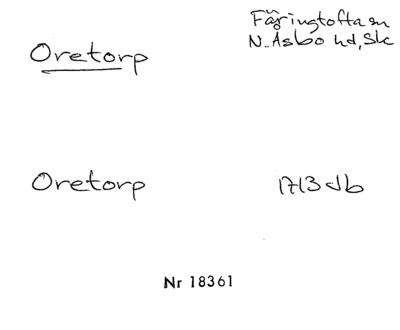 Oretorp
Färingtofta sn
N. Åsbo hd, Sk
Oretorp
1713 Jb
Nr 18361